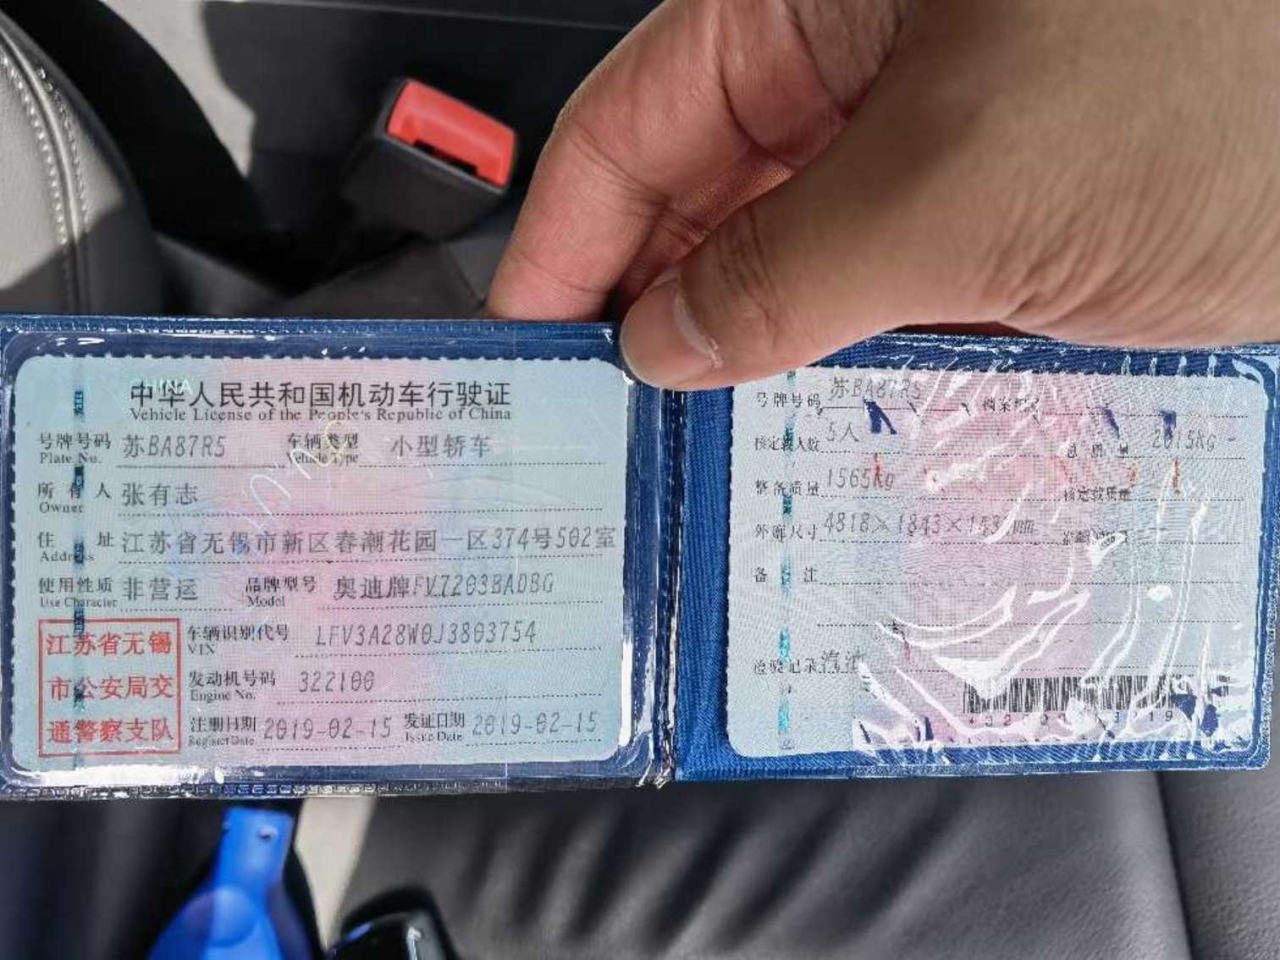 中华人民共和国机动车行驶证
Vehicle License of the People's Republic of China
号牌号码 苏BA87R5 车辆类型 小型轿车
Plate No. Vehicle Type
所有人 张有志
Owner
住址 江苏省无锡市新区春潮花园一区374号502室
Address
使用性质 非营运 品牌型号 奥迪牌FV7203BADBG
Use Character Model
江苏省无锡
市公安局交
通警察支队
车辆识别代号 LFV3A28W0J3803754
VIN
发动机号码 322100
Engine No.
注册日期 2019-02-15 发证日期 2019-02-15
Register Date Issue Date
号牌号码 苏BA87R5 档案编号
核定载人数 5人 总质量 2015kg
整备质量 1565kg 核定载质量
外廓尺寸 4818×1843×143 mm
备注
检验记录 汽油